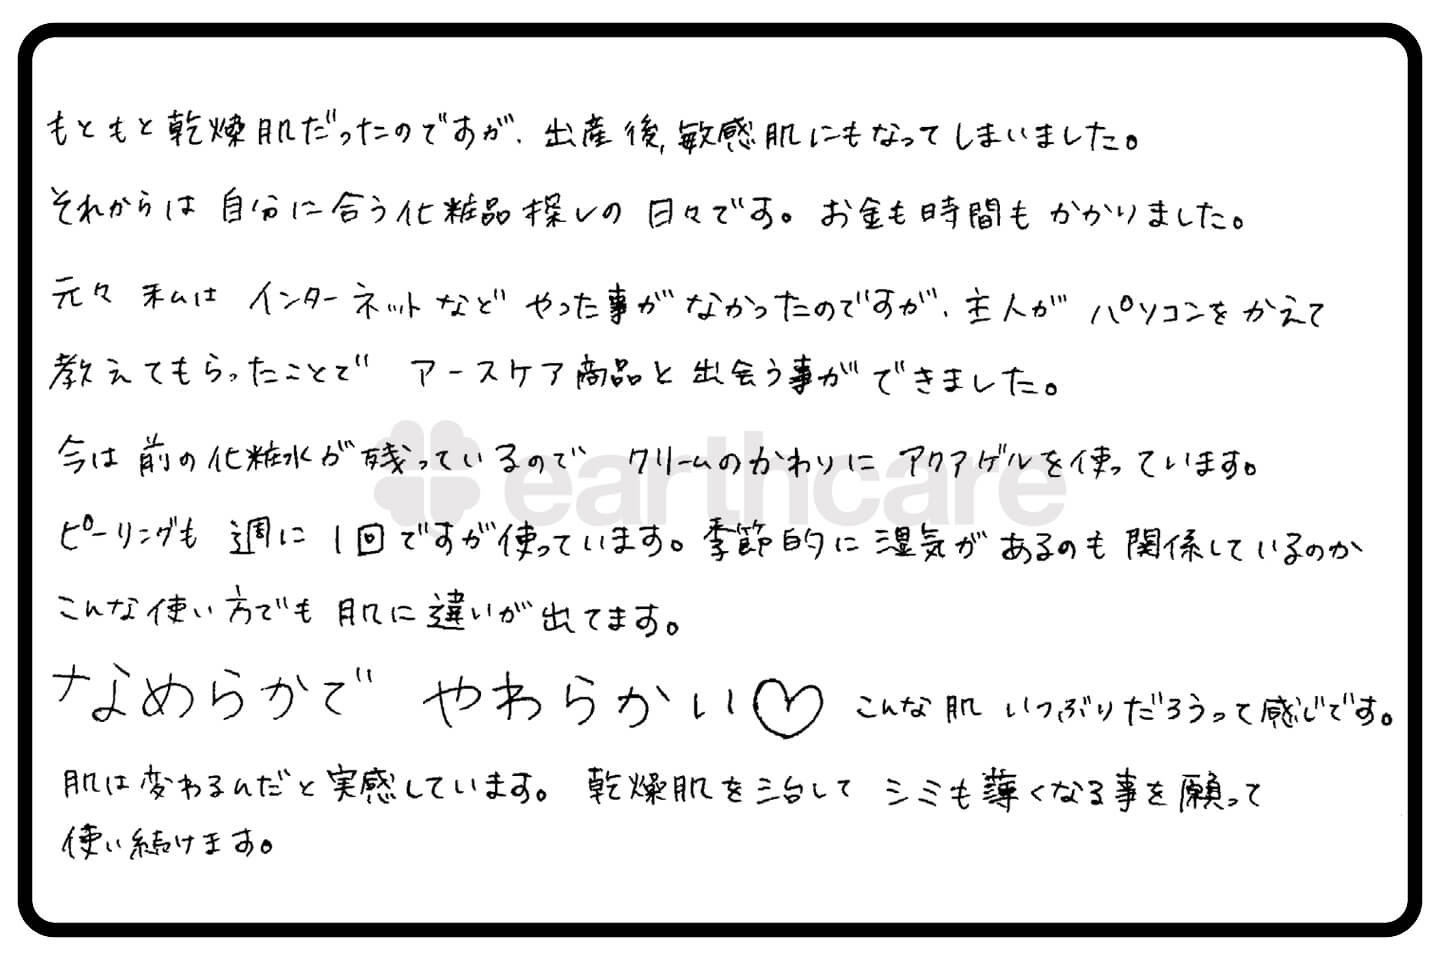 もともと乾燥肌だったのですが、出産後、敏感肌にもなってしまいました。
それからは 自分に合う化粧品探しの 日々です。お金も時間も かかりました。
元々 私は インターネットなど やった事がなかったのですが、主人が パソコンをかえて
教えてもらったことで アースケア商品と出会う事ができました。
今は 前の化粧水が残っているので クリームのかわりに アクアゲルを使っています。
earthcare
ピーリングも 週に 1回ですが使っています。季節的に湿気があるのも関係しているのか
こんな使い方でも 肌に違いが出てます。
なめらかで やわらかい♡ こんな肌 いつぶりだろうって感じです。
肌は変わるんだと実感しています。 乾燥肌を治して シミも薄くなる事を願って
使い続けます。